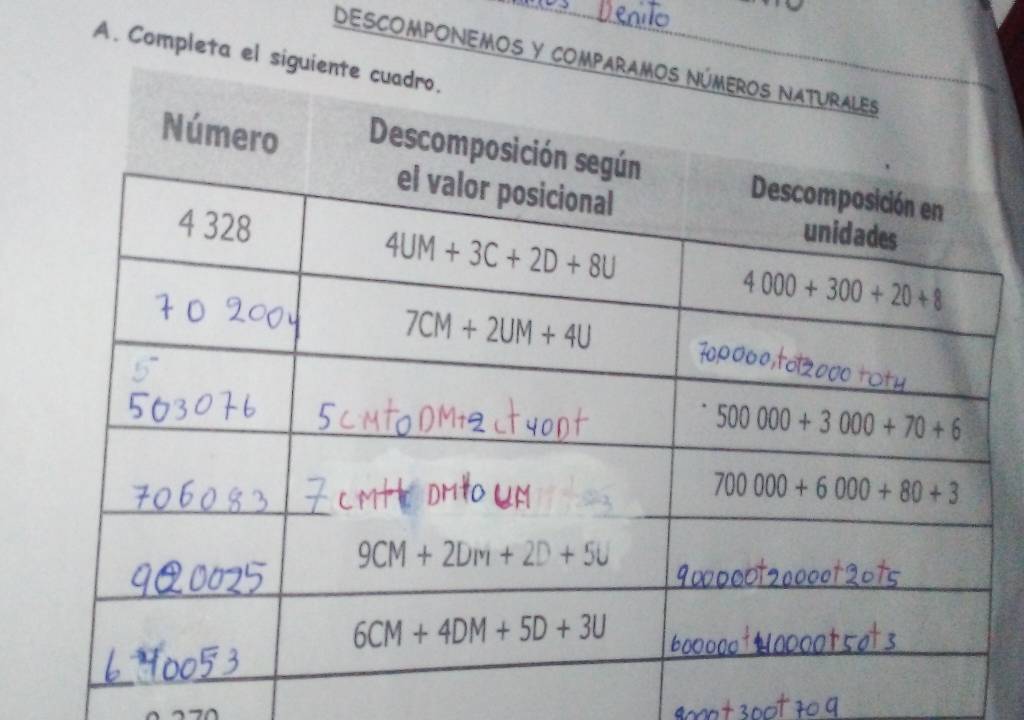 Benito
DESCOMPONEMOS Y COMPARAMOS NÚMEROS NATURALES
A. Completa el siguiente cuadro.
Número Descomposición según el valor posicional Descomposición en unidades
4 328 4UM + 3C + 2D + 8U 4 000 + 300 + 20 + 8
70 2004 7CM + 2UM + 4U 700000,+0+2000+0+4
5
503076 5CM+0DM+2C+40D+ 500 000 + 3 000 + 70 + 6
706083 7CM+ DM+0UM 700 000 + 6 000 + 80 + 3
920025 9CM + 2Dm + 2D + 5U 900000+20000+20+5
640053 6CM + 4DM + 5D + 3U 600000+40000+50+3
9000+300+709